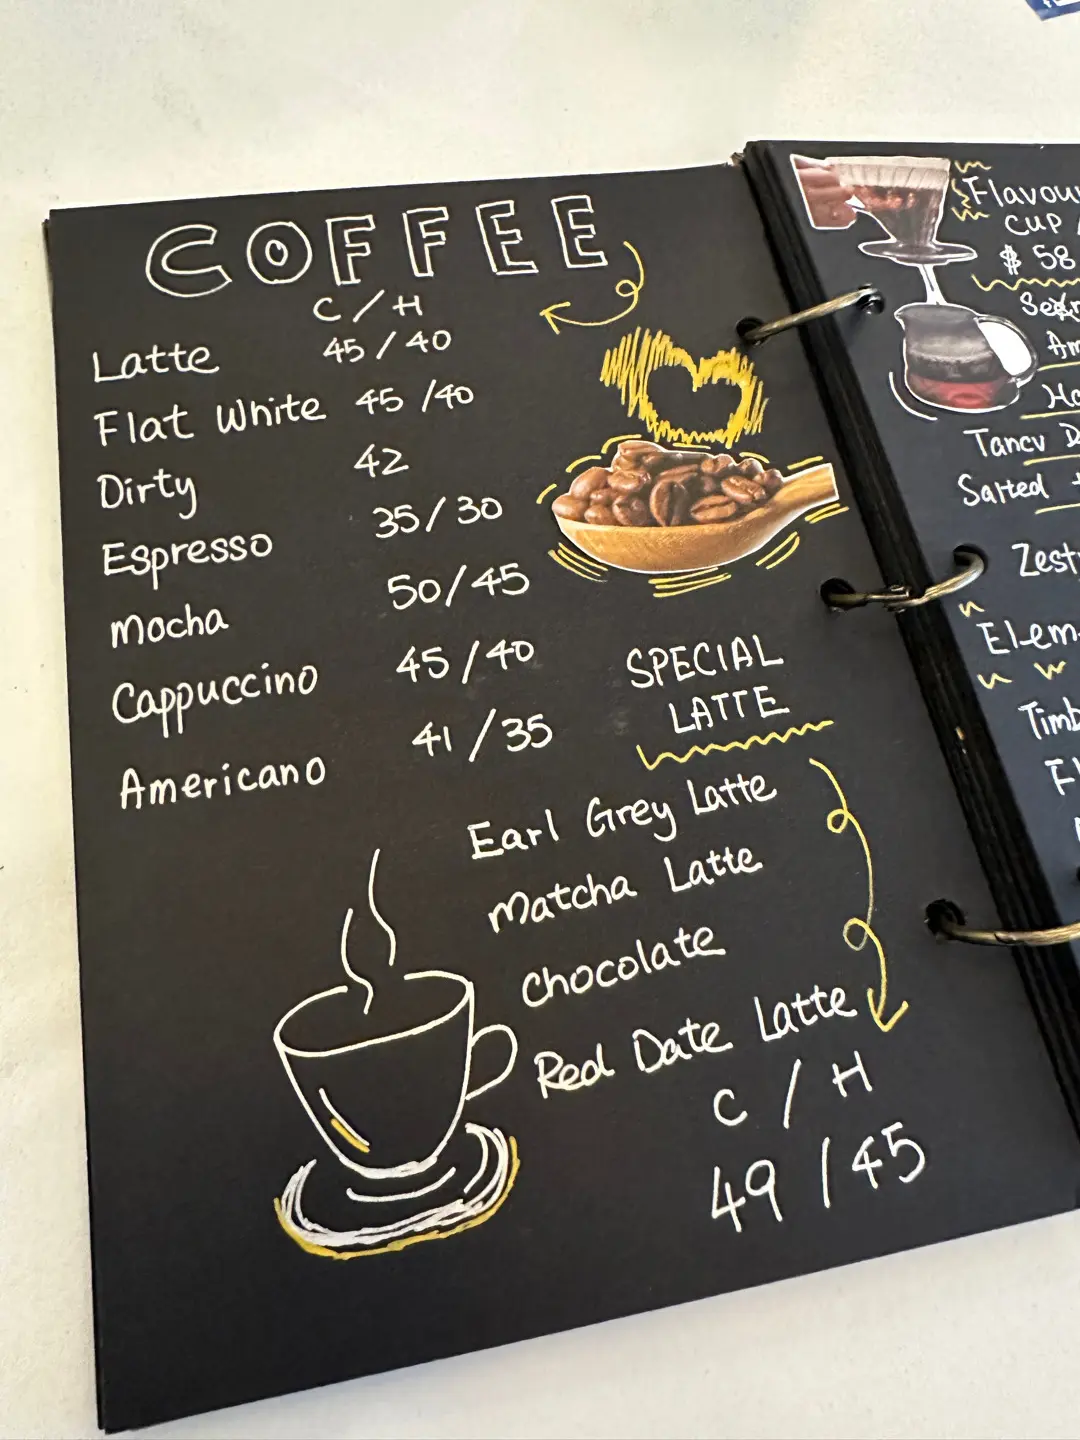 COFFEE
C / H
Latte 45 / 40
Flat White 45 / 40
Dirty 42
Espresso 35 / 30
Mocha 50 / 45
Cappuccino 45 / 40
Americano 41 / 35
SPECIAL
LATTE
Earl Grey Latte
Matcha Latte
Chocolate
Red Date Latte
C / H
49 / 45
CUP
$ 58
Salted